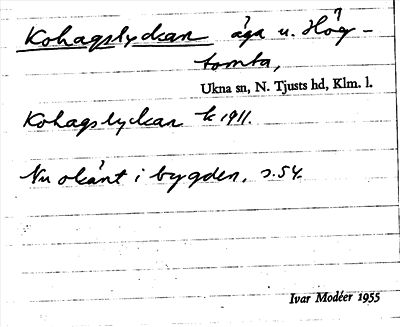 Kohagslyckan äga u. Hög-
tomta,
Ukna sn, N. Tjusts hd, Klm. l.
Kohagslyckan k 1911.
Nu okänt i bygden, s. 54.
Ivar Modéer 1955